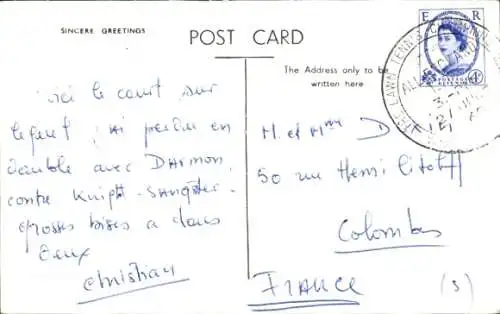 SINCERE GREETINGS
POST CARD
The Address only to be
written here
E R
THE LAWN TENNIS CHAMPIONSHIPS
ici le court sur
lequel j'ai perdu en
double avec DARMON
contre Knight-SANGSTER.
grosses bises a vous
deux
Christian
M. et Mme D
50 rue Henri Litolff
Colombes
FRANCE